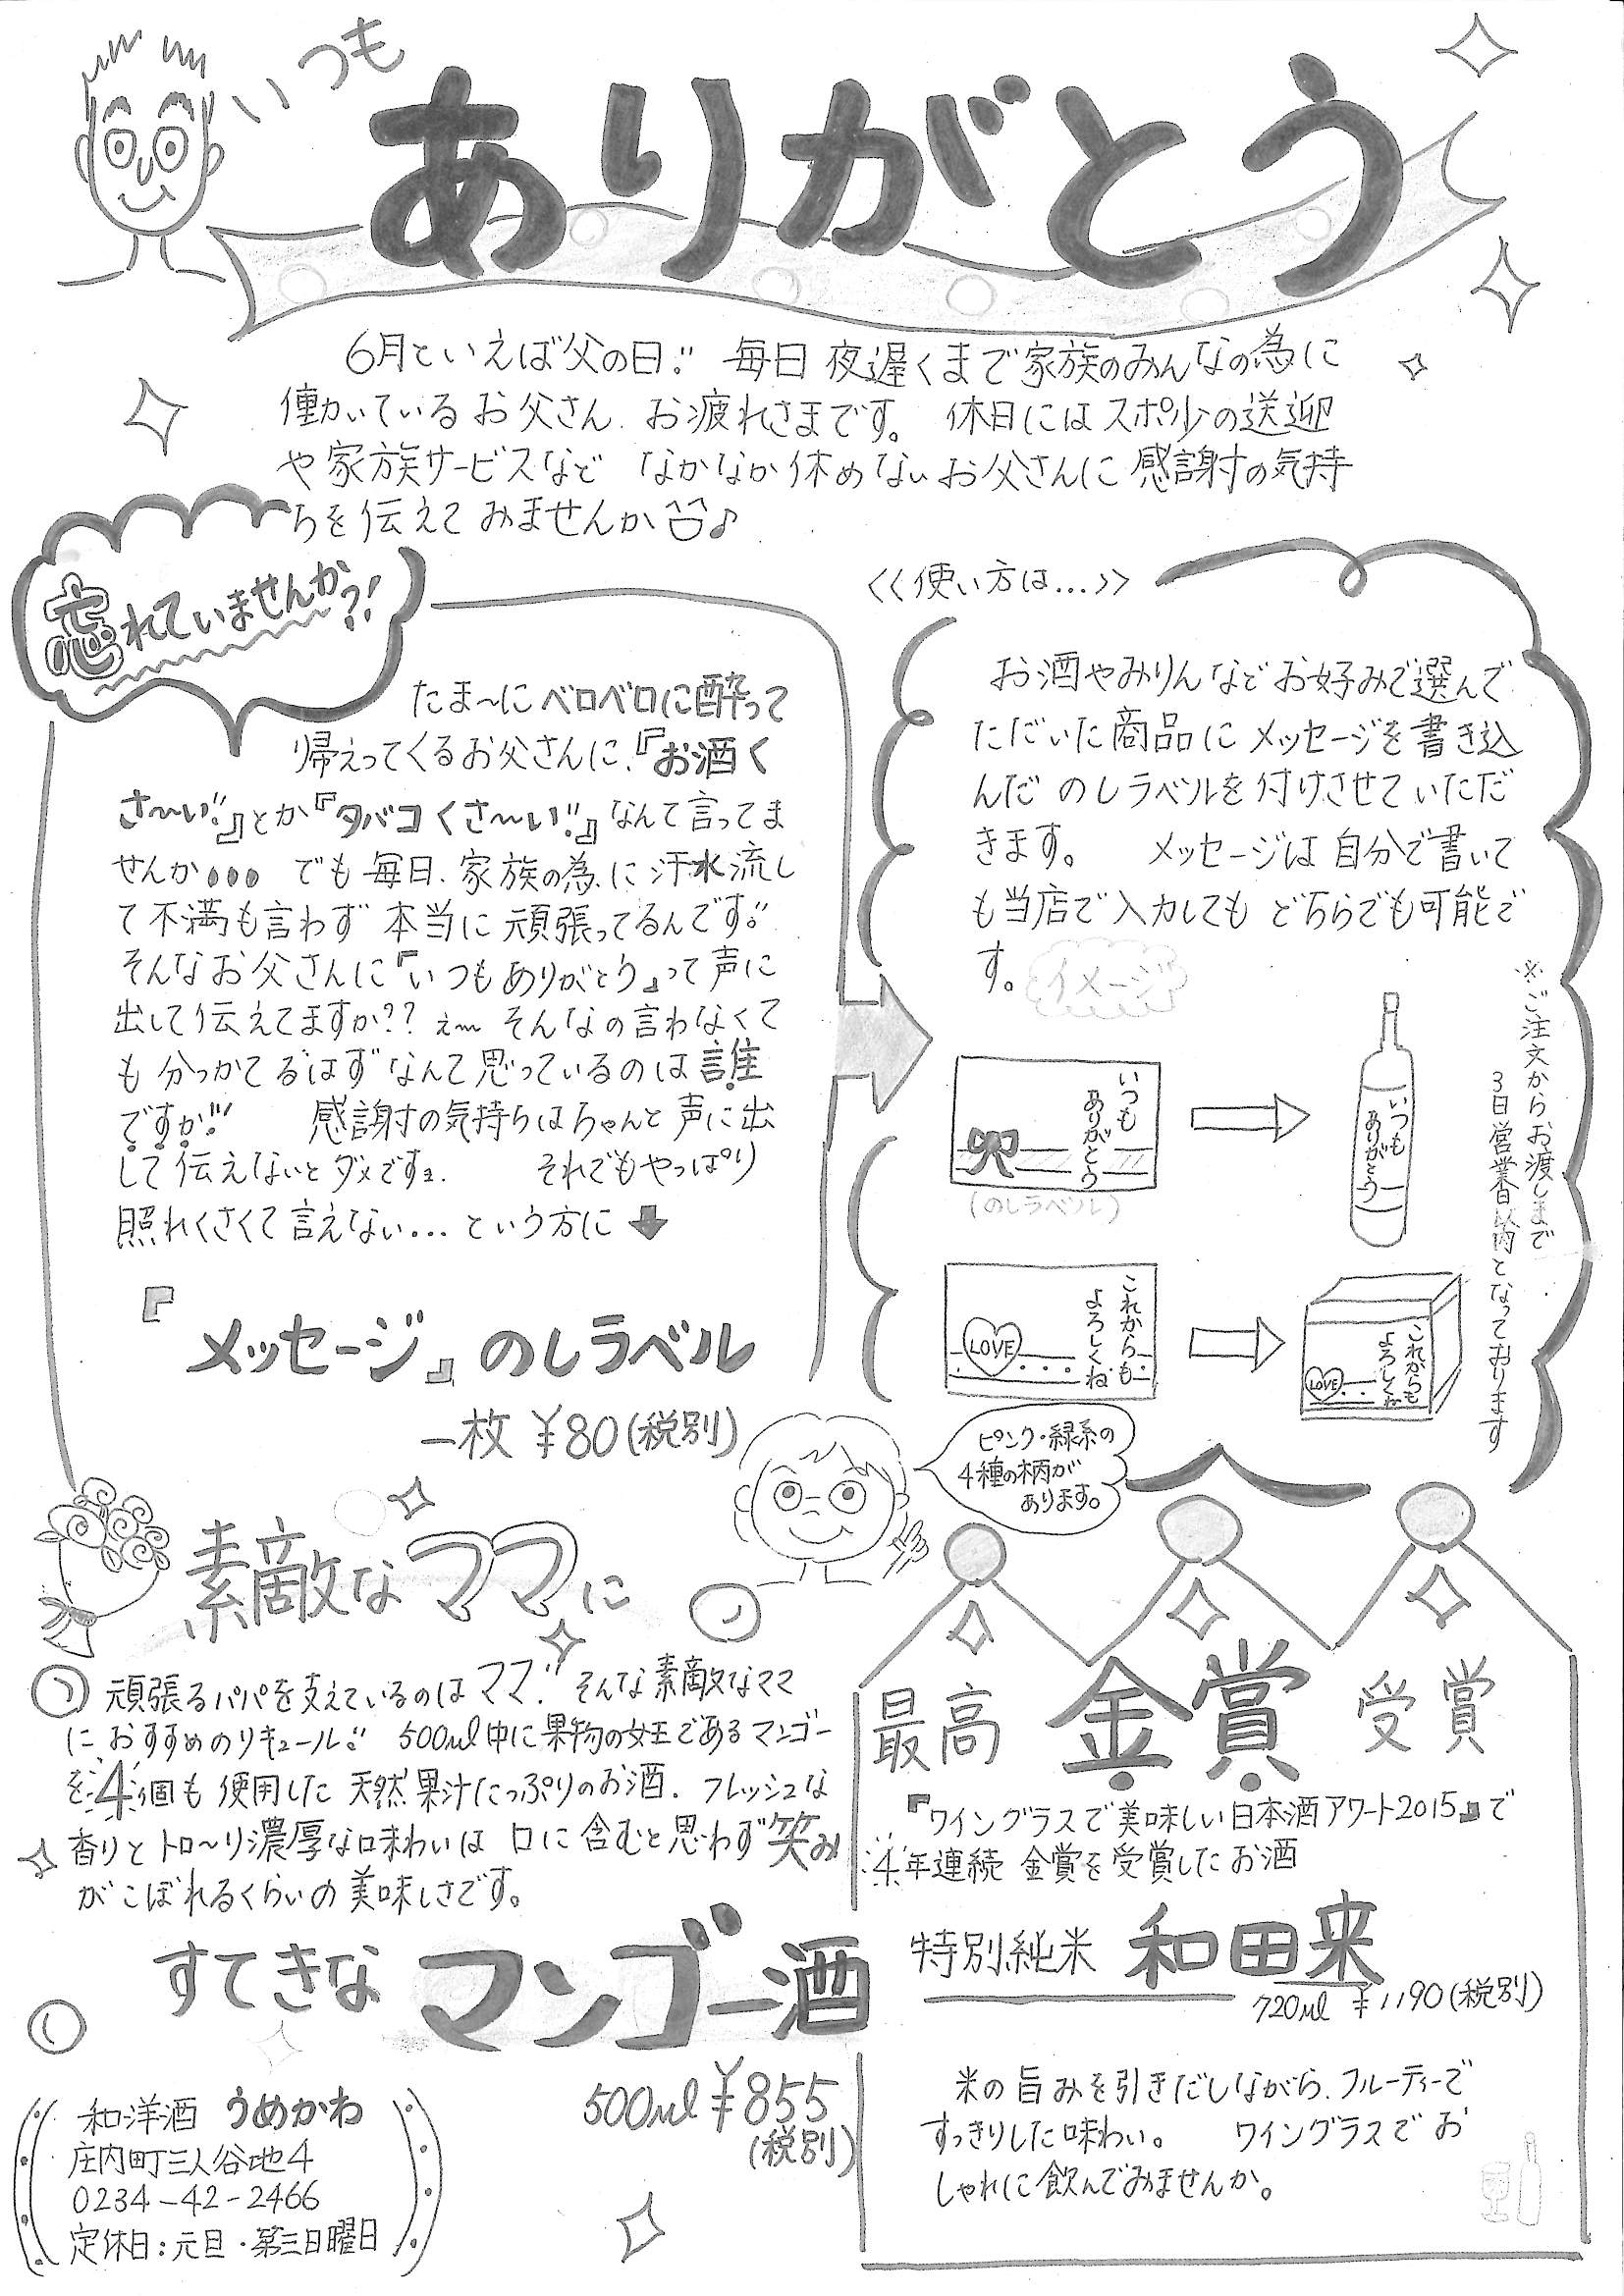 いつも
ありがとう
6月といえば父の日!! 毎日 夜遅くまで家族のみんなの為に
働いているお父さん お疲れさまです。 休日にはスポ少の送迎
や家族サービスなど なかなか休めないお父さんに 感謝の気持
ちを伝えてみませんか♪
忘れていませんかっ!!
たま〜にベロベロに酔って
帰えってくるお父さんに、『お酒く
さ〜い!!』とか『タバコくさ〜い!!』なんて言ってま
せんか... でも毎日、家族の為に汗水流し
て不満も言わず 本当に頑張ってるんです!!
そんなお父さんに『いつもありがとう』って声に
出して伝えてますか?? え〜 そんなの言わなくて
も分っかてるはず なんて思っているのは誰
ですか!!! 感謝の気持ちはちゃんと声に出
して伝えないとダメですョ. それでもやっぱり
照れくさくて言えない... という方に ⬇
『メッセージ』のしラベル
一枚 ¥80(税別)
<<使い方は...>>
お酒やみりんなどお好みで選んで
ただいた商品にメッセージを書き込
んだ のしラベルを付けさせていただ
きます。 メッセージは自分で書いて
も当店で入力しても どちらでも可能で
す。
イメージ
いつも
ありがとう
(のしラベル)
いつも
ありがとう
これからも
よろしくね
LOVE
これからも
よろしくね
LOVE
※ご注文からお渡しまで
3日営業日以内となっております
ピンク・緑系の
4種の柄が
あります。
素敵なママに
頑張るパパを支えているのはママ!! そんな素敵なママ
におすすめのリキュール!! 500ml中に果物の女王であるマンゴー
を4個も使用した 天然果汁たっぷりのお酒. フレッシュな
香りとトロ〜リ濃厚な味わいは 口に含むと思わず笑み
がこぼれるくらいの美味しさです。
すてきな マンゴー酒
500ml ¥855
(税別)
最高 金賞 受賞
『ワイングラスで美味しい日本酒アワート2015』で
4年連続 金賞を受賞したお酒
特別純米 和田来
720ml ¥1190(税別)
米の旨みを引きだしながら、フルーティーで
すっきりした味わい。 ワイングラスでお
しゃれに飲んでみませんか。
和洋酒 うめかわ
庄内町三人谷地4
0234-42-2466
定休日:元旦・第三日曜日